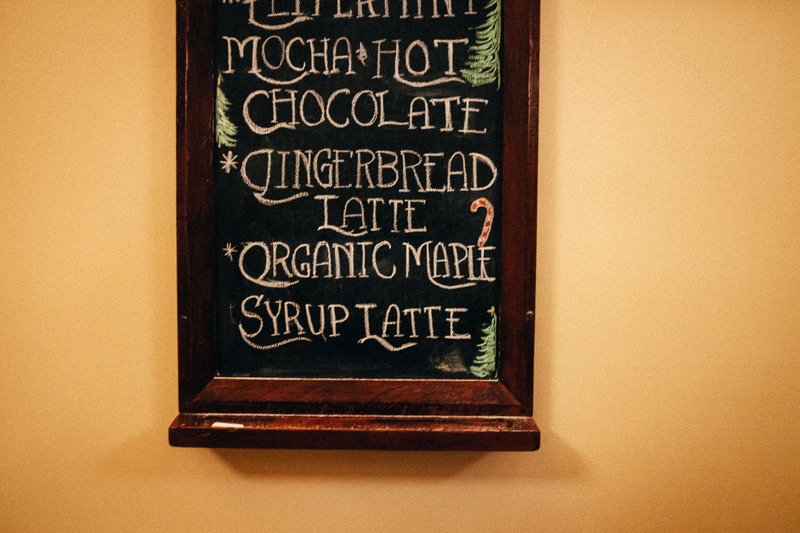 *PEPPERMINT
MOCHA * HOT
CHOCOLATE
*GINGERBREAD
LATTE
*ORGANIC MAPLE
SYRUP LATTE